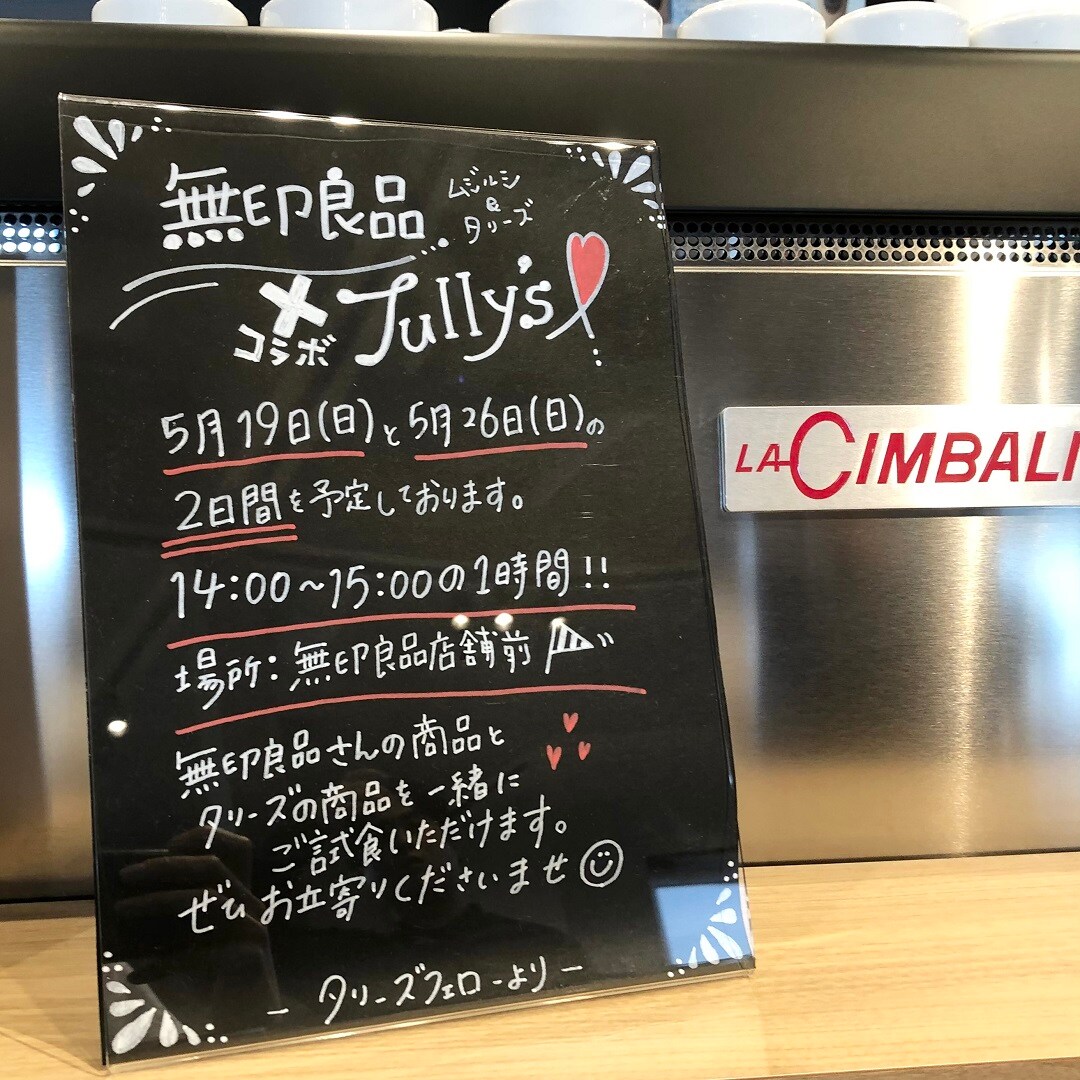 無印良品
ムジルシ
&
タリーズ
×
コラボ
Tully's
5月19日(日)と5月26日(日)の
2日間を予定しております。
14:00~15:00の1時間!!
場所:無印良品店舗前
無印良品さんの商品と
タリーズの商品を一緒に
ご試食いただけます。
ぜひお立寄りくださいませ
- タリーズフェローより -
LA CIMBALI